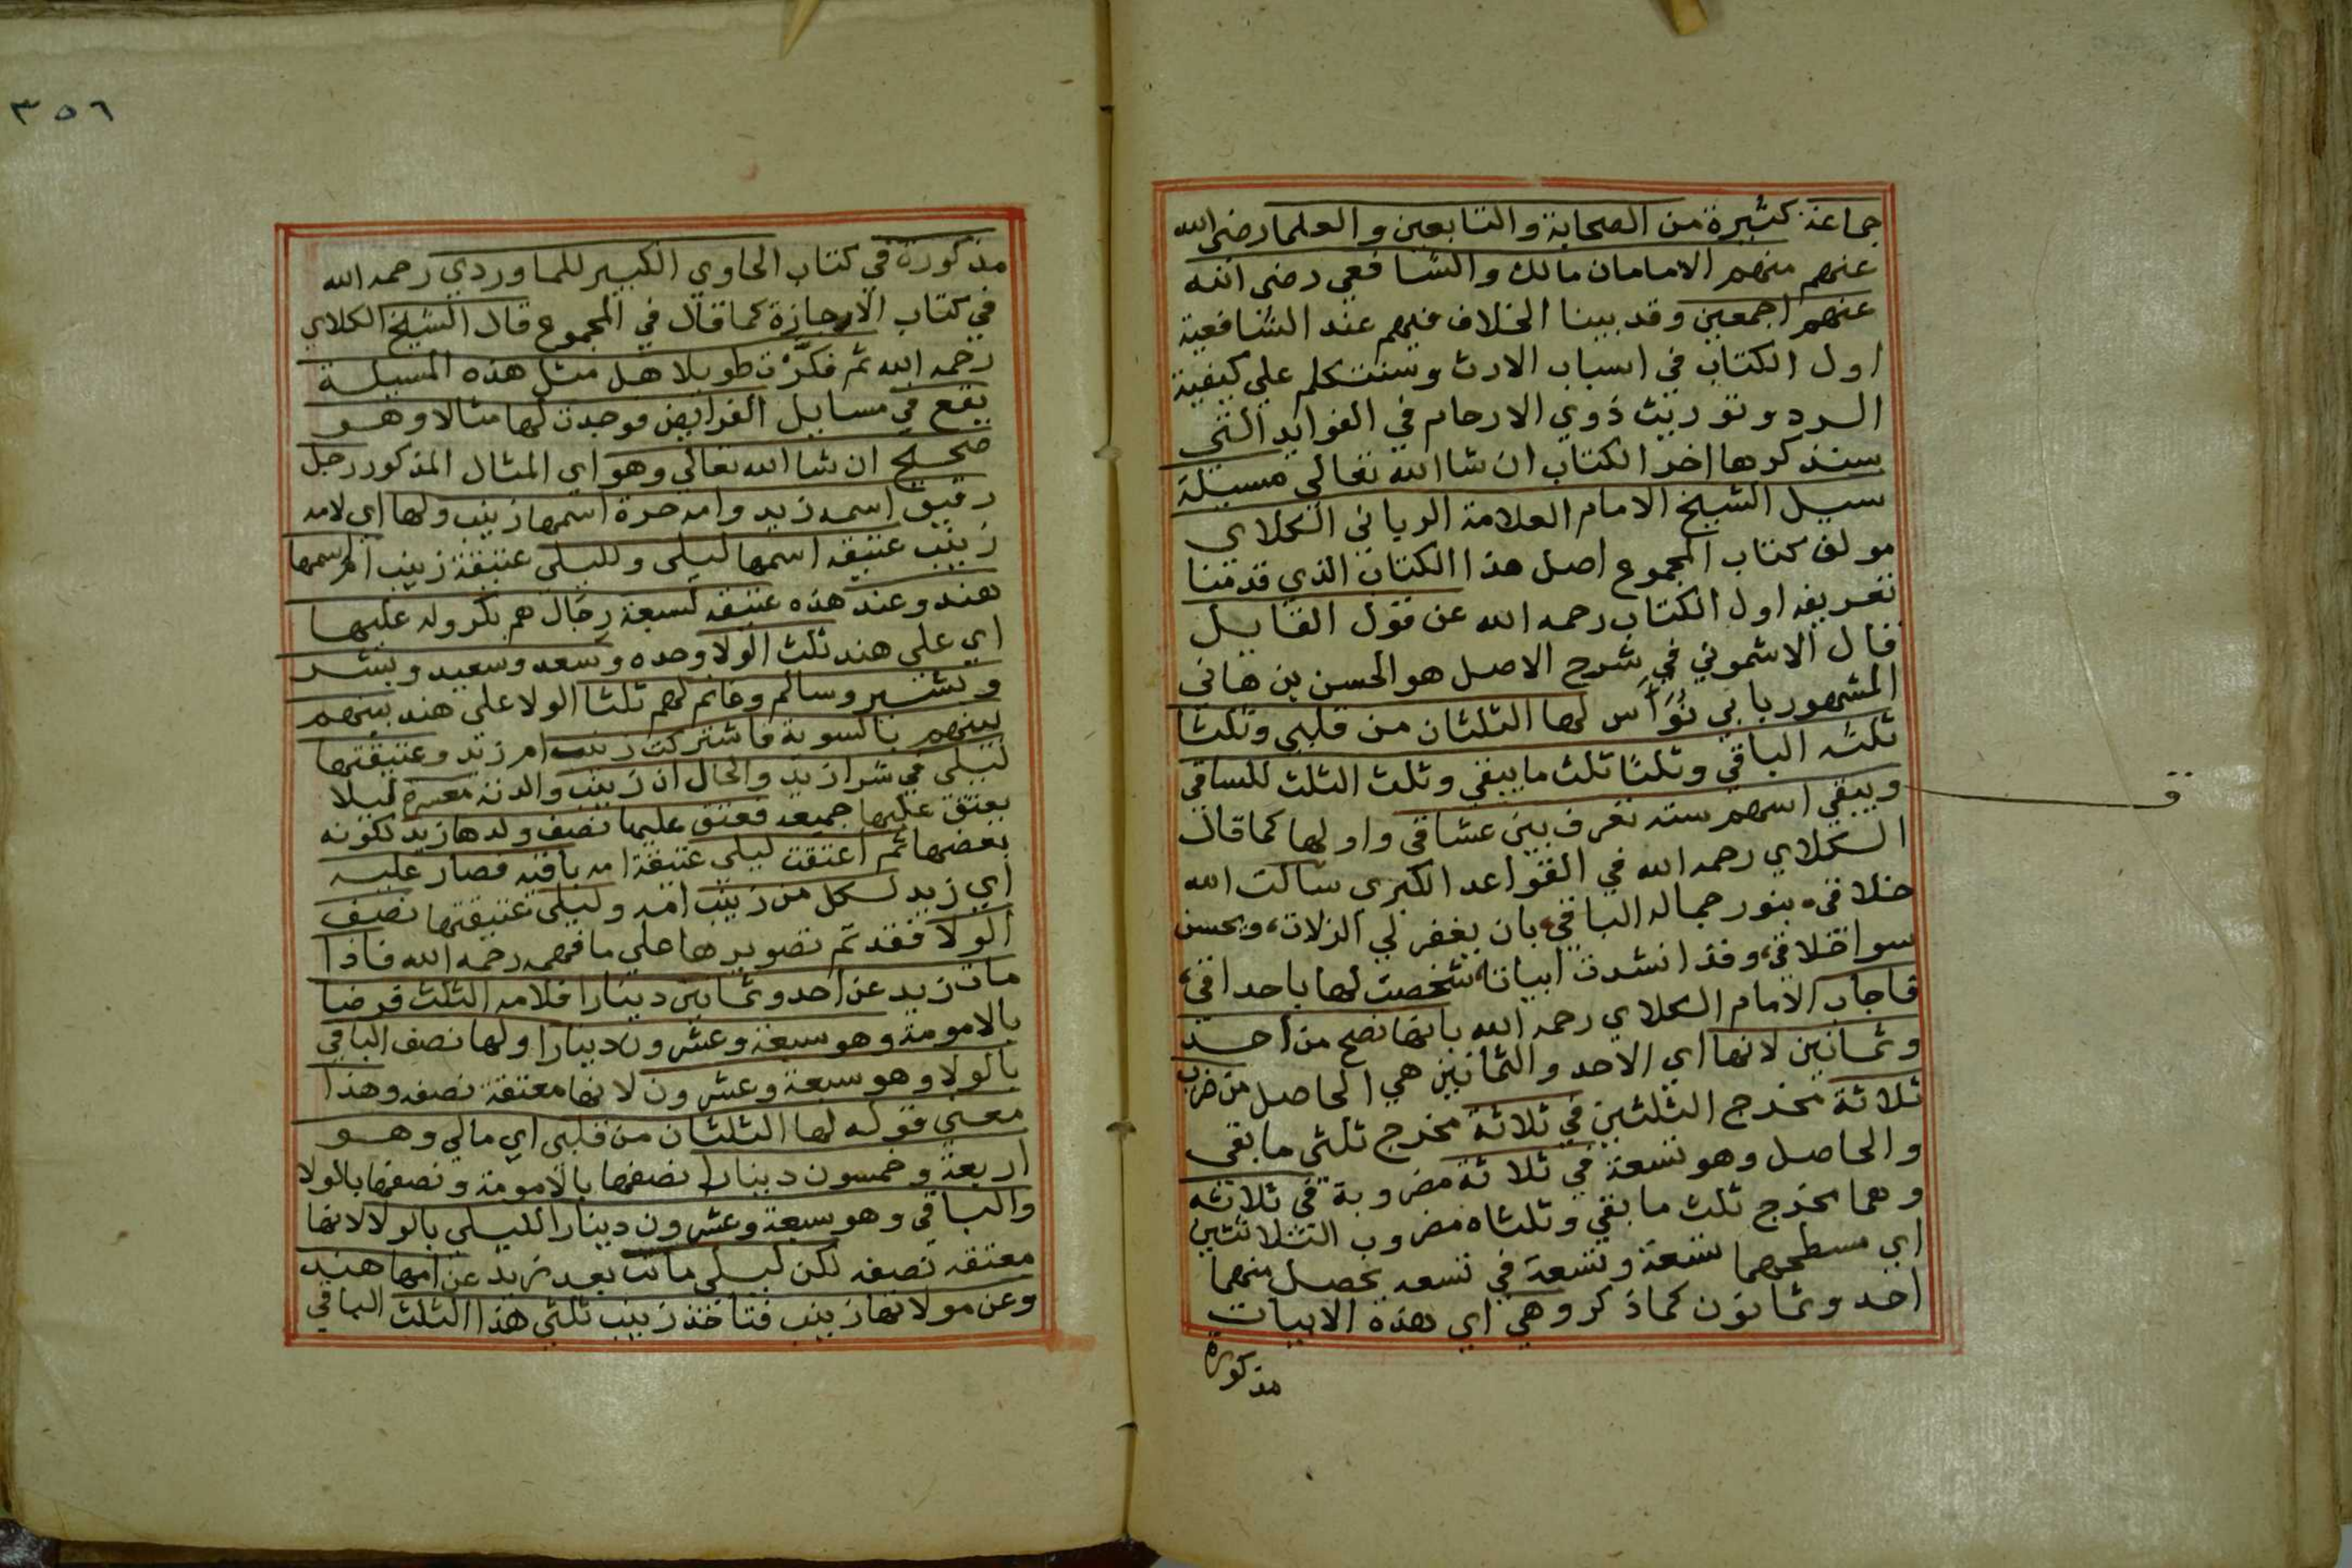 جماعة كثيرة من الصحابة والتابعين والعلما رضي الله
عنهم منهم الامامان مالك والشافعي رضي الله
عنهم اجمعين وقد بينا الخلاف فيهم عند الشافعية
اول الكتاب في اسباب الارث وسنتكلم علي كيفية
الرد وتوريث ذوي الارحام في الفوايد التي
سنذكرها اخر الكتاب ان شا الله تعالي مسيلة
سيل الشيخ الامام العلامة الرباني الكلاي
مولف كتاب المجموع اصل هذا الكتاب الذي قدمنا
تعريفه اول الكتاب رحمه الله عن قول القايل
قال الاشموني في شرح الاصل هو الحسن بن هاني
المشهور بابي نُوَاس لها الثلثان من قلبي وثلثا
ثلثه الباقي وثلثا ثلث ما يبقي وثلث الثلث للساقي
ويبقي اسهم ستة تفرق بين عشاقي واولها كما قال
الكلاي رحمه الله في القواعد الكبري سالت الله
خلاقي، بنور جماله الباقي، بان يغفر لي الزلات، ويحسن
سوا خلاقي، وقد انشدت ابياتا، شخصت لها باحداقي،
فاجاب الامام الكلاي رحمه الله بانها تصح من احد
وثمانين لانها اي الاحد والثمانين هي الحاصل من ضرب
ثلاثة مخرج الثلثين في ثلاثة مخرج ثلثي ما بقي
والحاصل وهو تسعة في ثلاثة مضروبة في ثلاثة
وهما مخرج ثلث ما بقي وثلثاه مضروب الثلاثتين
اي مسطحهما تسعة وتسعة في تسعه يحصل منهما
احد وثمانون كما ذكر وهي اي هذه الابيات
مذكورة
ق
٣٥٦
مذكورة في كتاب الحاوي الكبير للماوردي رحمه الله
في كتاب الاجازة كما قال في المجموع قال الشيخ الكلاي
رحمه الله ثم فكَّرْت طويلا هل مثل هذه المسيلة
يقع في مسايل الفرايض فوجدت لها مثالا وهو
صحيح ان شا الله تعالي وهو اي المثال المذكور رجل
رقيق اسمه زيد وامه حرة اسمها زينب ولها اي لامه
زينب عتيقه اسمها ليلي ولليلي عتيقة زينب ام اسمها
هند وعند هذه عتيقه لسبعة رجال هم بكر وله عليها
اي علي هند ثلث الولا وحده وسعد وسعيد وبشر
وبشير وسالم وغانم لهم ثلثا الولا علي هند بينهم
بينهم بالسوية فاشتركت زينب ام زيد وعتيقتها
ليلي في شرا زيد والحال ان زينب والدته معسرة ليلا
يعتق عليها جميعه فعتق عليها نصف ولدها زيد لكونه
بعضها ثم اعتقت ليلي عتيقة امه باقيه فصار عليه
اي زيد لكل من زينب امه وليلي عتيقتها نصف
الولا فقد تم تصويرها علي ما فهمه رحمه الله فاذا
مات زيد عن احد وثمانين دينارا فلامه الثلث فرضا
بالامومة وهو سبعة وعشرون دينارا ولها نصف الباقي
بالولا وهو سبعة وعشرون لانها معتقة نصفه وهذا
معني قوله لها الثلثان من قلبي اي مالي وهو
اربعة وخمسون دينارا نصفها بالامومة ونصفها بالولا
والباقي وهو سبعة وعشرون دينارا لليلي بالولا لانها
معتقه نصفه لكن ليلي ماتت بعد زيد عن امها هند
وعن مولاتها زينب فتاخذ زينب ثلثي هذا الثلث الباقي